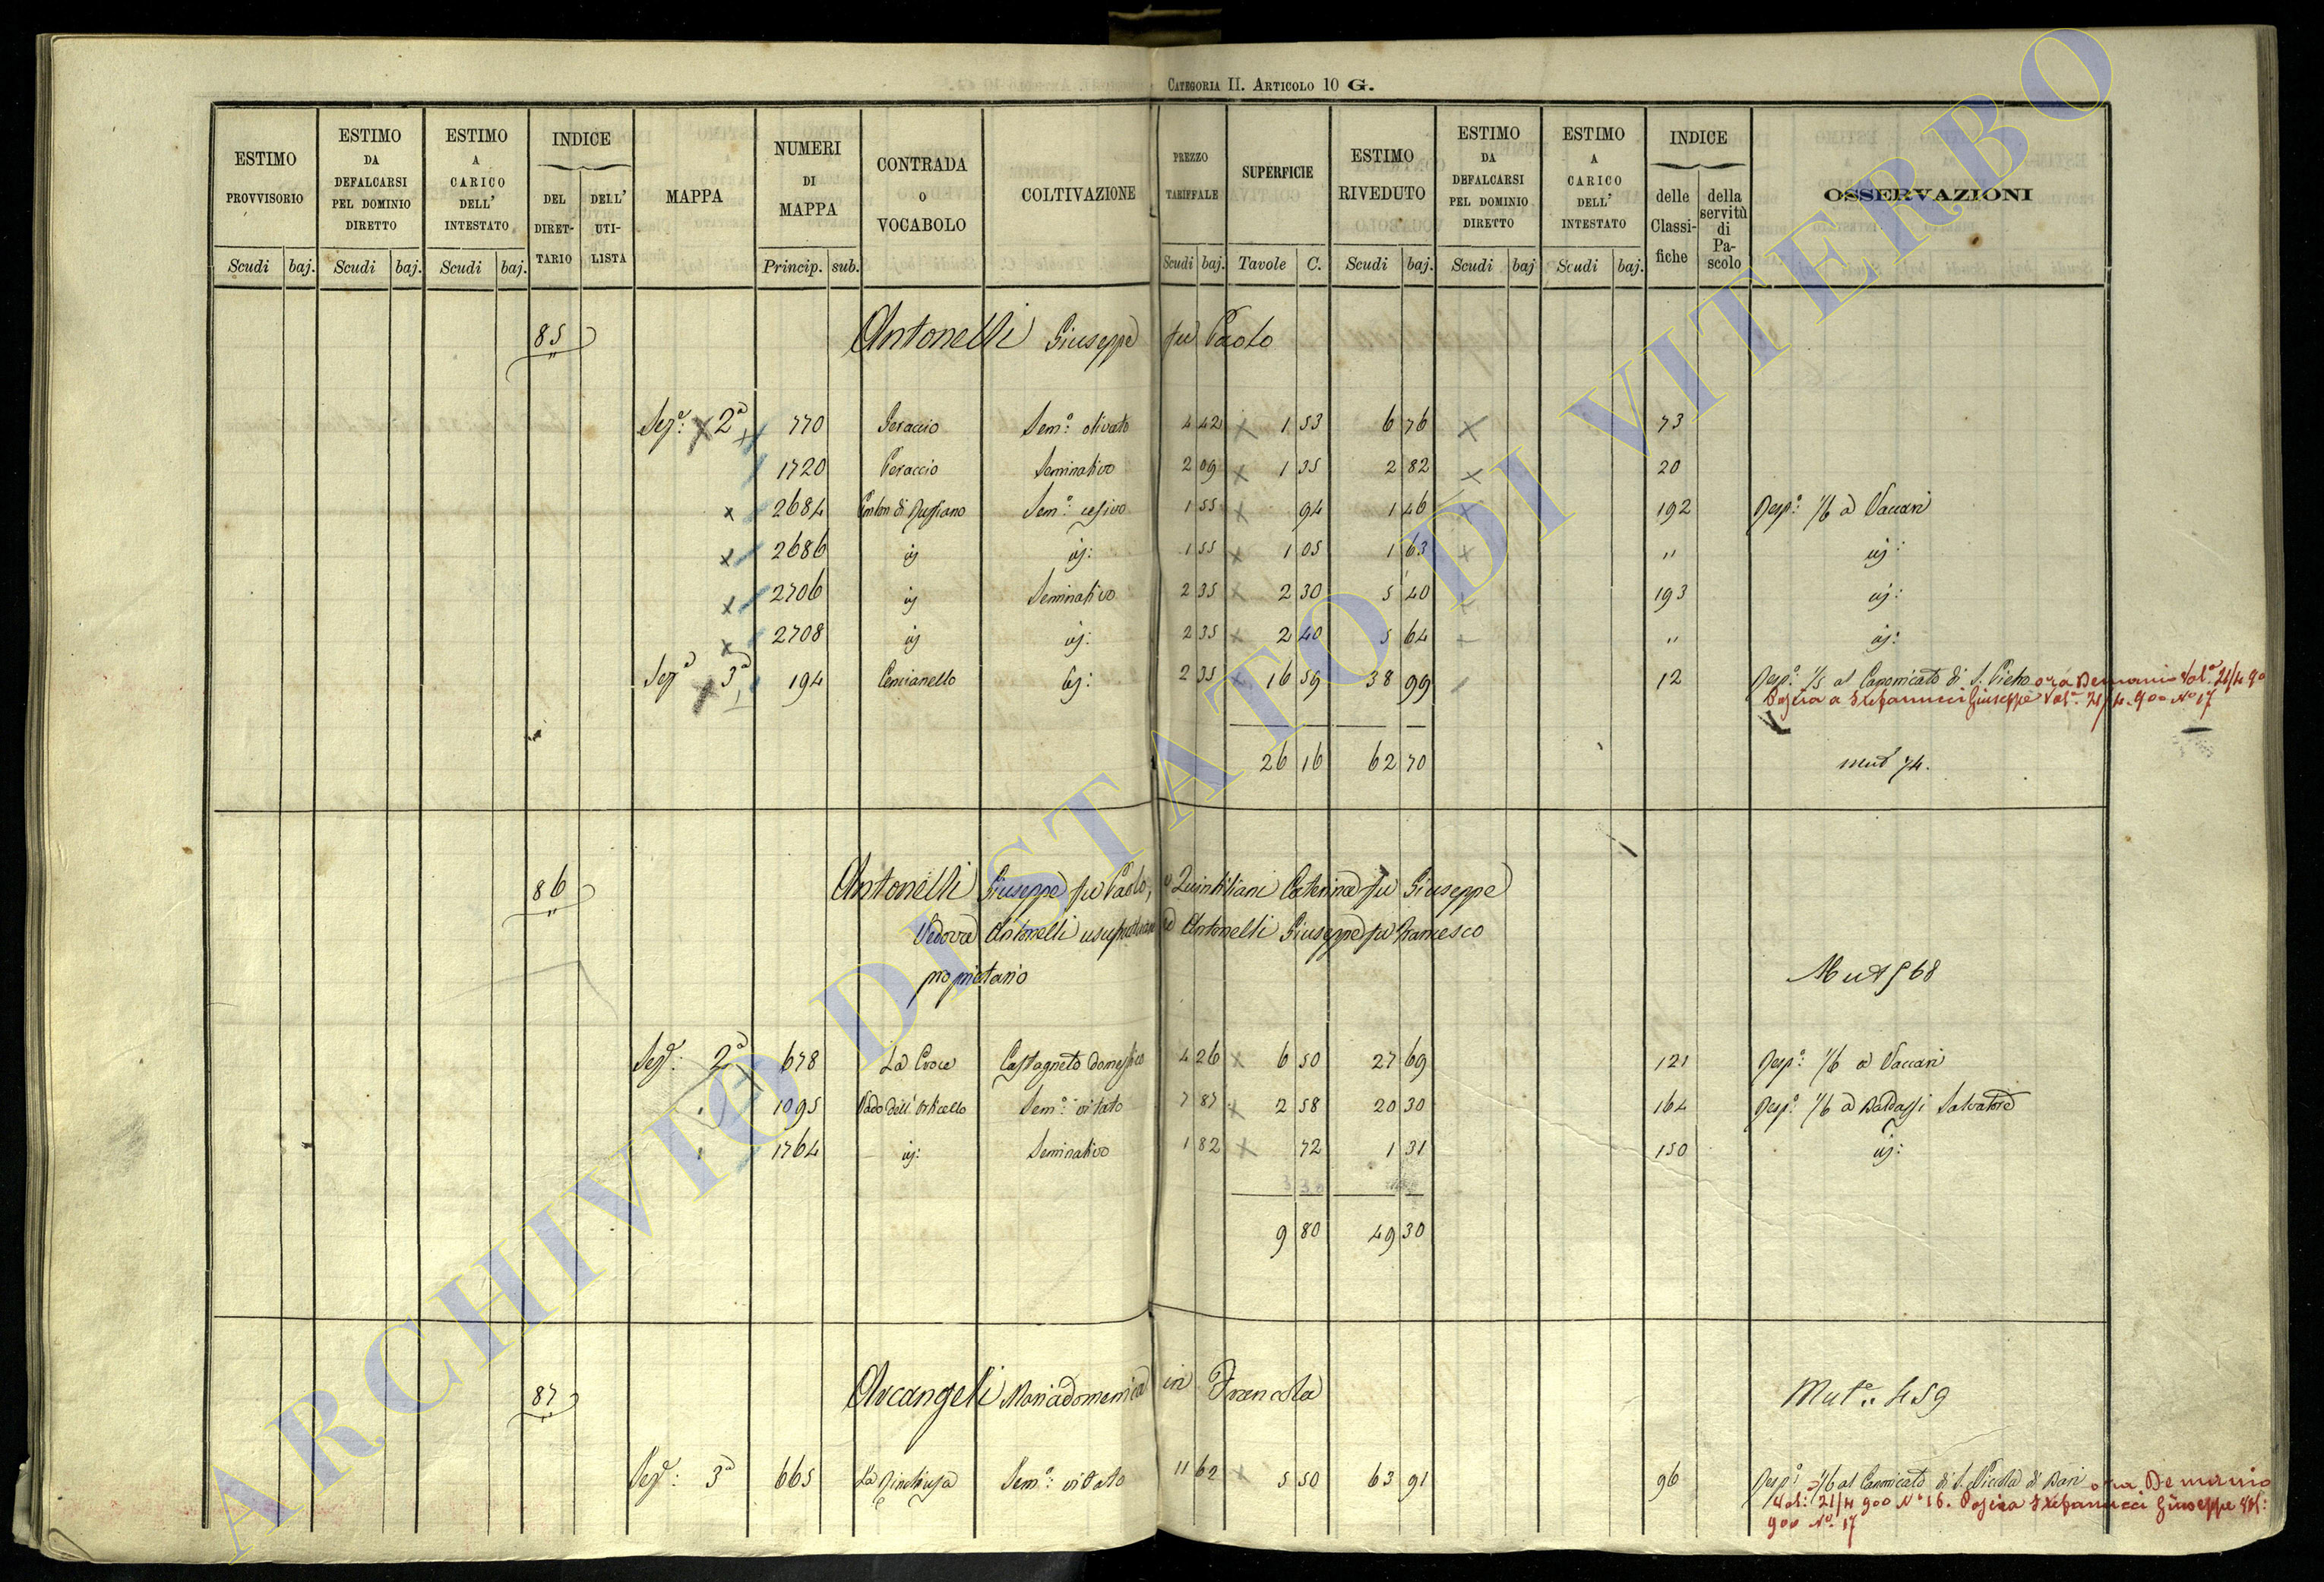 CATEGORIA II. ARTICOLO 10 G.
ESTIMO PROVVISORIO ESTIMO DA DEFALCARSI PEL DOMINIO DIRETTO ESTIMO A CARICO DELL' INTESTATO INDICE DEL DIRETTARIO DELL' UTILISTA MAPPA NUMERI DI MAPPA CONTRADA O VOCABOLO COLTIVAZIONE PREZZO TARIFFALE SUPERFICIE ESTIMO RIVEDUTO ESTIMO DA DEFALCARSI PEL DOMINIO DIRETTO ESTIMO A CARICO DELL' INTESTATO INDICE delle Classifiche della servitù di Pascolo OSSERVAZIONI
Scudi baj. Scudi baj. Scudi baj. Princip. sub. Scudi baj. Tavole C. Scudi baj. Scudi baj Scudi baj.
85 Antonelli Giuseppe fu Paolo
Sez.e 2a 770 Peraccio Sem.o olivato 4 42 1 53 6 76 73
1720 Peraccio Seminativo 2 09 1 35 2 82 20
2684 Sem.o 1 55 94 1 46 192 Resp.o 1/6 a Vaccari
2686 id id: 1 55 1 05 1 63 " id:
2706 id Seminativo 2 35 2 30 5 40 193 id:
2708 id id: 2 35 2 40 5 64 " id:
Sez.e 3a 194 Cencianello id: 2 35 16 59 38 99 12 Resp.o 1/5 al Canonicato di S. Pietro ora Demanio Vol.a 21/4 90
Voltura a Stefanucci Giuseppe Vol.a 21/4.900 No 17
26 16 62 70 mut 74.
86 Antonelli Giuseppe fu Paolo, e Quintiliani Caterina fu Giuseppe
Vedova Antonelli ed Antonelli Giuseppe fu Francesco
proprietario
Mut 568
Sez.e 2a 678 La Croce Castagneto domestico 4 26 6 50 27 69 121 Resp.o 1/6 a Vaccari
1095 Vado dell' Orticello Sem.o vitato 7 87 2 58 20 30 164 Resp.o 1/6 a Baldassi Salvatore
1764 id: Seminativo 1 82 72 1 31 150 id:
9 80 49 30
87 Arcangeli Mariadomenica in Francola Mut.e 459
Sez.e 3a 665 La Rinchiusa Sem.o vitato 11 62 5 50 63 91 96 Resp. 1/6 al Canonicato di S. Nicola di Bari ora Demanio
Vol: 21/4 900 No 16. Stefanucci Giuseppe Vol:
900 No. 17
ARCHIVIO DI STATO DI VITERBO